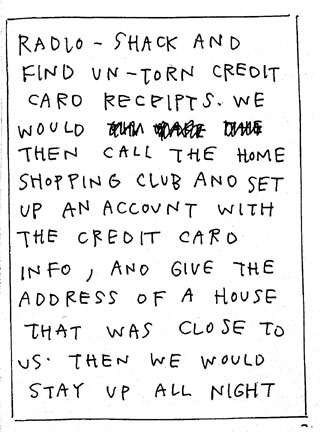 RADIO - SHACK AND
FIND UN-TORN CREDIT
CARD RECEIPTS. WE
WOULD
THEN CALL THE HOME
SHOPPING CLUB AND SET
UP AN ACCOUNT WITH
THE CREDIT CARD
INFO, AND GIVE THE
ADDRESS OF A HOUSE
THAT WAS CLOSE TO
US. THEN WE WOULD
STAY UP ALL NIGHT